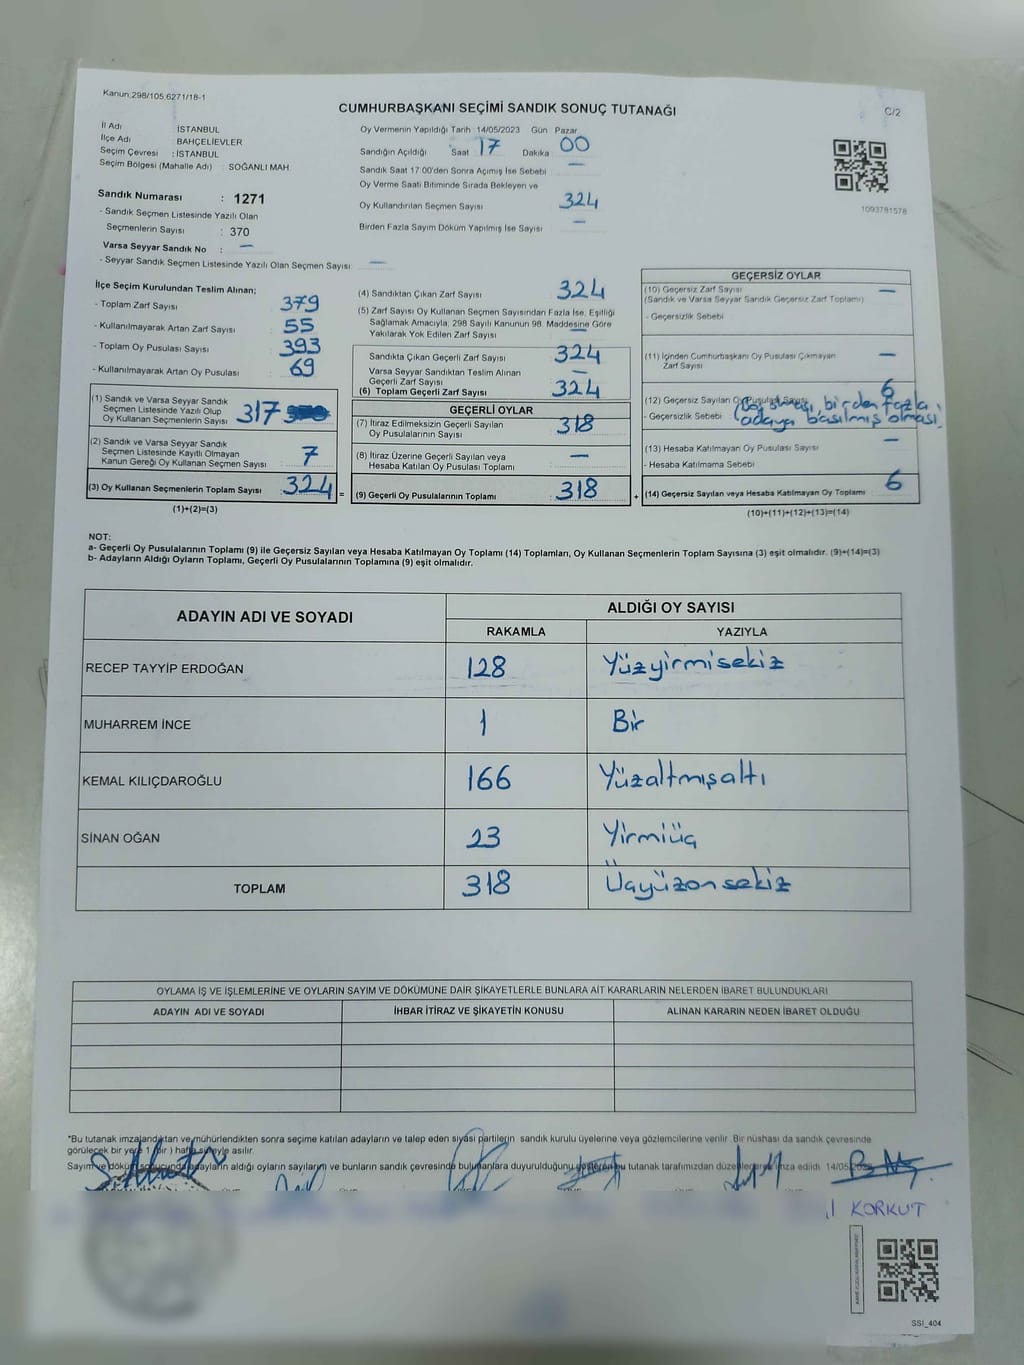 Kanun:298/105,6271/18-1
CUMHURBAŞKANI SEÇİMİ SANDIK SONUÇ TUTANAĞI
C/2
İl Adı : İSTANBUL
İlçe Adı : BAHÇELİEVLER
Seçim Çevresi : İSTANBUL
Seçim Bölgesi (Mahalle Adı) : SOĞANLI MAH.
Sandık Numarası : 1271
- Sandık Seçmen Listesinde Yazılı Olan
Seçmenlerin Sayısı : 370
Varsa Seyyar Sandık No : —
- Seyyar Sandık Seçmen Listesinde Yazılı Olan Seçmen Sayısı: —
Oy Vermenin Yapıldığı Tarih 14/05/2023 Gün Pazar
Sandığın Açıldığı Saat 17 Dakika 00
Sandık Saat 17:00'den Sonra Açımış İse Sebebi —
Oy Verme Saati Bitiminde Sırada Bekleyen ve
Oy Kullandırılan Seçmen Sayısı 324
Birden Fazla Sayım Döküm Yapılmış İse Sayısı —
1093781578
İlçe Seçim Kurulundan Teslim Alınan;
- Toplam Zarf Sayısı : 379
- Kullanılmayarak Artan Zarf Sayısı : 55
- Toplam Oy Pusulası Sayısı : 393
- Kullanılmayarak Artan Oy Pusulası : 69
(1) Sandık ve Varsa Seyyar Sandık
Seçmen Listesinde Yazılı Olup
Oy Kullanan Seçmenlerin Sayısı : 317
(2) Sandık ve Varsa Seyyar Sandık
Seçmen Listesinde Kayıtlı Olmayan
Kanun Gereği Oy Kullanan Seçmen Sayısı : 7
(3) Oy Kullanan Seçmenlerin Toplam Sayısı : 324
(1)+(2)=(3)
(4) Sandıktan Çıkan Zarf Sayısı 324
(5) Zarf Sayısı Oy Kullanan Seçmen Sayısından Fazla İse, Eşitliği
Sağlamak Amacıyla, 298 Sayılı Kanunun 98. Maddesine Göre
Yakılarak Yok Edilen Zarf Sayısı —
Sandıkta Çıkan Geçerli Zarf Sayısı 324
Varsa Seyyar Sandıktan Teslim Alınan
Geçerli Zarf Sayısı —
(6) Toplam Geçerli Zarf Sayısı 324
GEÇERLİ OYLAR
(7) İtiraz Edilmeksizin Geçerli Sayılan
Oy Pusulalarının Sayısı : 318
(8) İtiraz Üzerine Geçerli Sayılan veya
Hesaba Katılan Oy Pusulası Toplamı : —
= (9) Geçerli Oy Pusulalarının Toplamı : 318
GEÇERSİZ OYLAR
(10) Geçersiz Zarf Sayısı —
(Sandık ve Varsa Seyyar Sandık Geçersiz Zarf Toplamı)
- Geçersizlik Sebebi
(11) İçinden Cumhurbaşkanı Oy Pusulası Çıkmayan
Zarf Sayısı —
(12) Geçersiz Sayılan Oy Pusulası Sayısı 6
- Geçersizlik Sebebi birden fazla
adaya basılmış olması.
(13) Hesaba Katılmayan Oy Pusulası Sayısı —
- Hesaba Katılmama Sebebi
+ (14) Geçersiz Sayılan veya Hesaba Katılmayan Oy Toplamı 6
(10)+(11)+(12)+(13)=(14)
NOT:
a- Geçerli Oy Pusulalarının Toplamı (9) ile Geçersiz Sayılan veya Hesaba Katılmayan Oy Toplamı (14) Toplamları, Oy Kullanan Seçmenlerin Toplam Sayısına (3) eşit olmalıdır. (9)+(14)=(3)
b- Adayların Aldığı Oyların Toplamı, Geçerli Oy Pusulalarının Toplamına (9) eşit olmalıdır.
ADAYIN ADI VE SOYADI ALDIĞI OY SAYISI
RAKAMLA YAZIYLA
RECEP TAYYİP ERDOĞAN 128 Yüzyirmisekiz
MUHARREM İNCE 1 Bir
KEMAL KILIÇDAROĞLU 166 Yüzaltmışaltı
SİNAN OĞAN 23 Yirmiüç
TOPLAM 318 Üçyüzonsekiz
OYLAMA İŞ VE İŞLEMLERİNE VE OYLARIN SAYIM VE DÖKÜMÜNE DAİR ŞİKAYETLERLE BUNLARA AİT KARARLARIN NELERDEN İBARET BULUNDUKLARI
ADAYIN ADI VE SOYADI İHBAR İTİRAZ VE ŞİKAYETİN KONUSU ALINAN KARARIN NEDEN İBARET OLDUĞU
*Bu tutanak imzalandıktan ve mühürlendikten sonra seçime katılan adayların ve talep eden siyasi partilerin sandık kurulu üyelerine veya gözlemcilerine verilir. Bir nüshası da sandık çevresinde
görülecek bir yere 1 (bir ) hafta süreyle asılır.
Sayım ve döküm sonucunda adayların aldığı oyların sayıların) ve bunların sandık çevresinde bulunanlara duyurulduğunu gösteren bu tutanak tarafımızdan düzenlenerek imza edildi. 14/05/2023
KORKUT
SSI_404